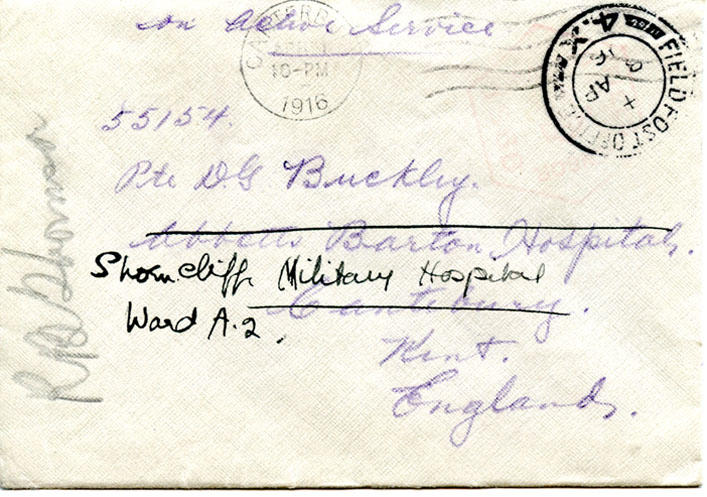 On Active Service
10-PM
1916
FIELD POST OFFICE
4.X.
AP
16
55154.
Pte D.G. Buckley.
Abbotts Barton Hospital.
Shorncliffe Military Hospital
Canterbury.
Ward A.2.
Kent.
England.